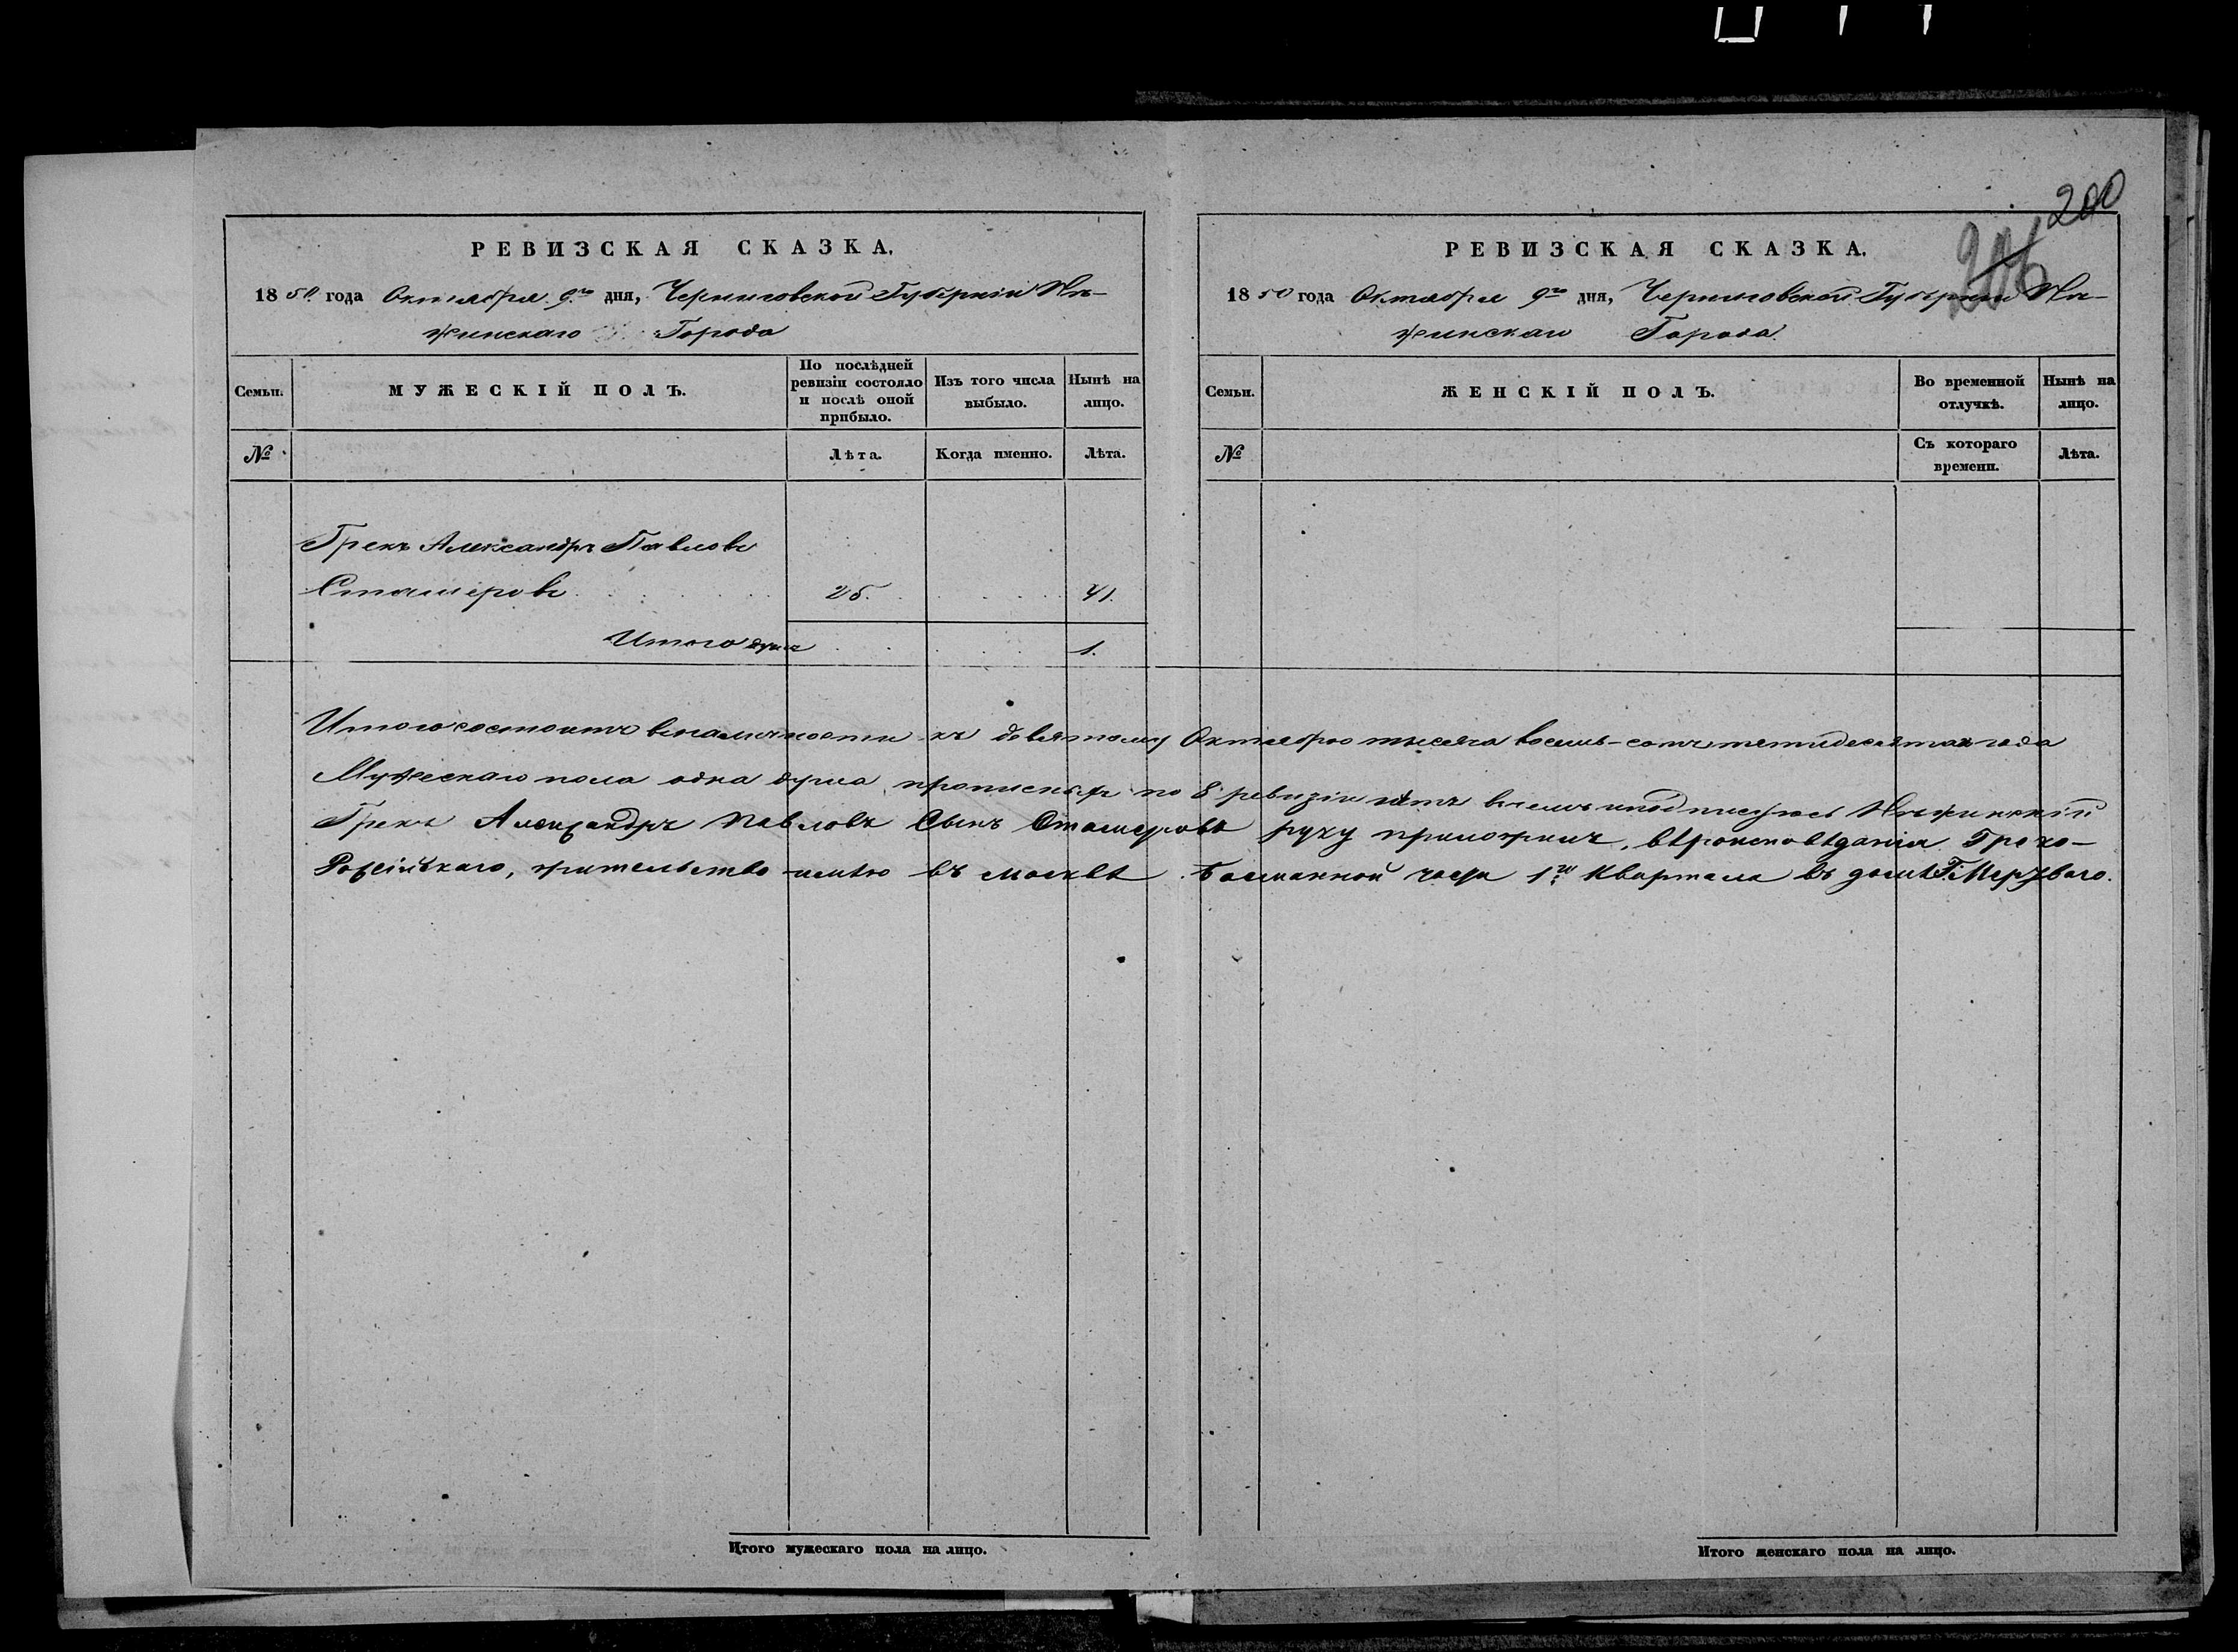 200
206
РЕВИЗСКАЯ СКАЗКА.
1850 года Октября 9го дня, Черниговской Губерніи Нѣ-
жинскаго Города
Семьи. МУЖЕСКІЙ ПОЛЪ. По послѣдней ревизіи состояло и послѣ оной прибыло. Изъ того числа выбыло. Нынѣ на лицо.
№ Лѣта. Когда именно. Лѣта.
Грекъ Александръ Павловъ
Стамеровъ 25. 41.
Итого душъ 1.
РЕВИЗСКАЯ СКАЗКА.
1850 года Октября 9го дня, Черниговской Губерніи Нѣ-
жинскаго Города.
Семьи. ЖЕНСКІЙ ПОЛЪ. Во временной отлучкѣ. Нынѣ на лицо.
№ Съ котораго времени. Лѣта.
Итого состоитъ вналичности къ девятому Октября тысяча восемь-сотъ пятидесятаго года
Мужескаго пола одна душа, прописныхъ по 8 ревизіи нѣтъ вчемъ иподписуюсь Нѣжинскій
Грекъ Александръ Павловъ Сынъ Стамеровъ руку приложилъ, вѣроисповѣданія Греко-
Россійскаго, жительство имѣю въ Москвѣ Басманной части 1го Квартала въ домѣ Г. Мертваго.
Итого мужескаго пола на лицо.
Итого женскаго пола на лицо.